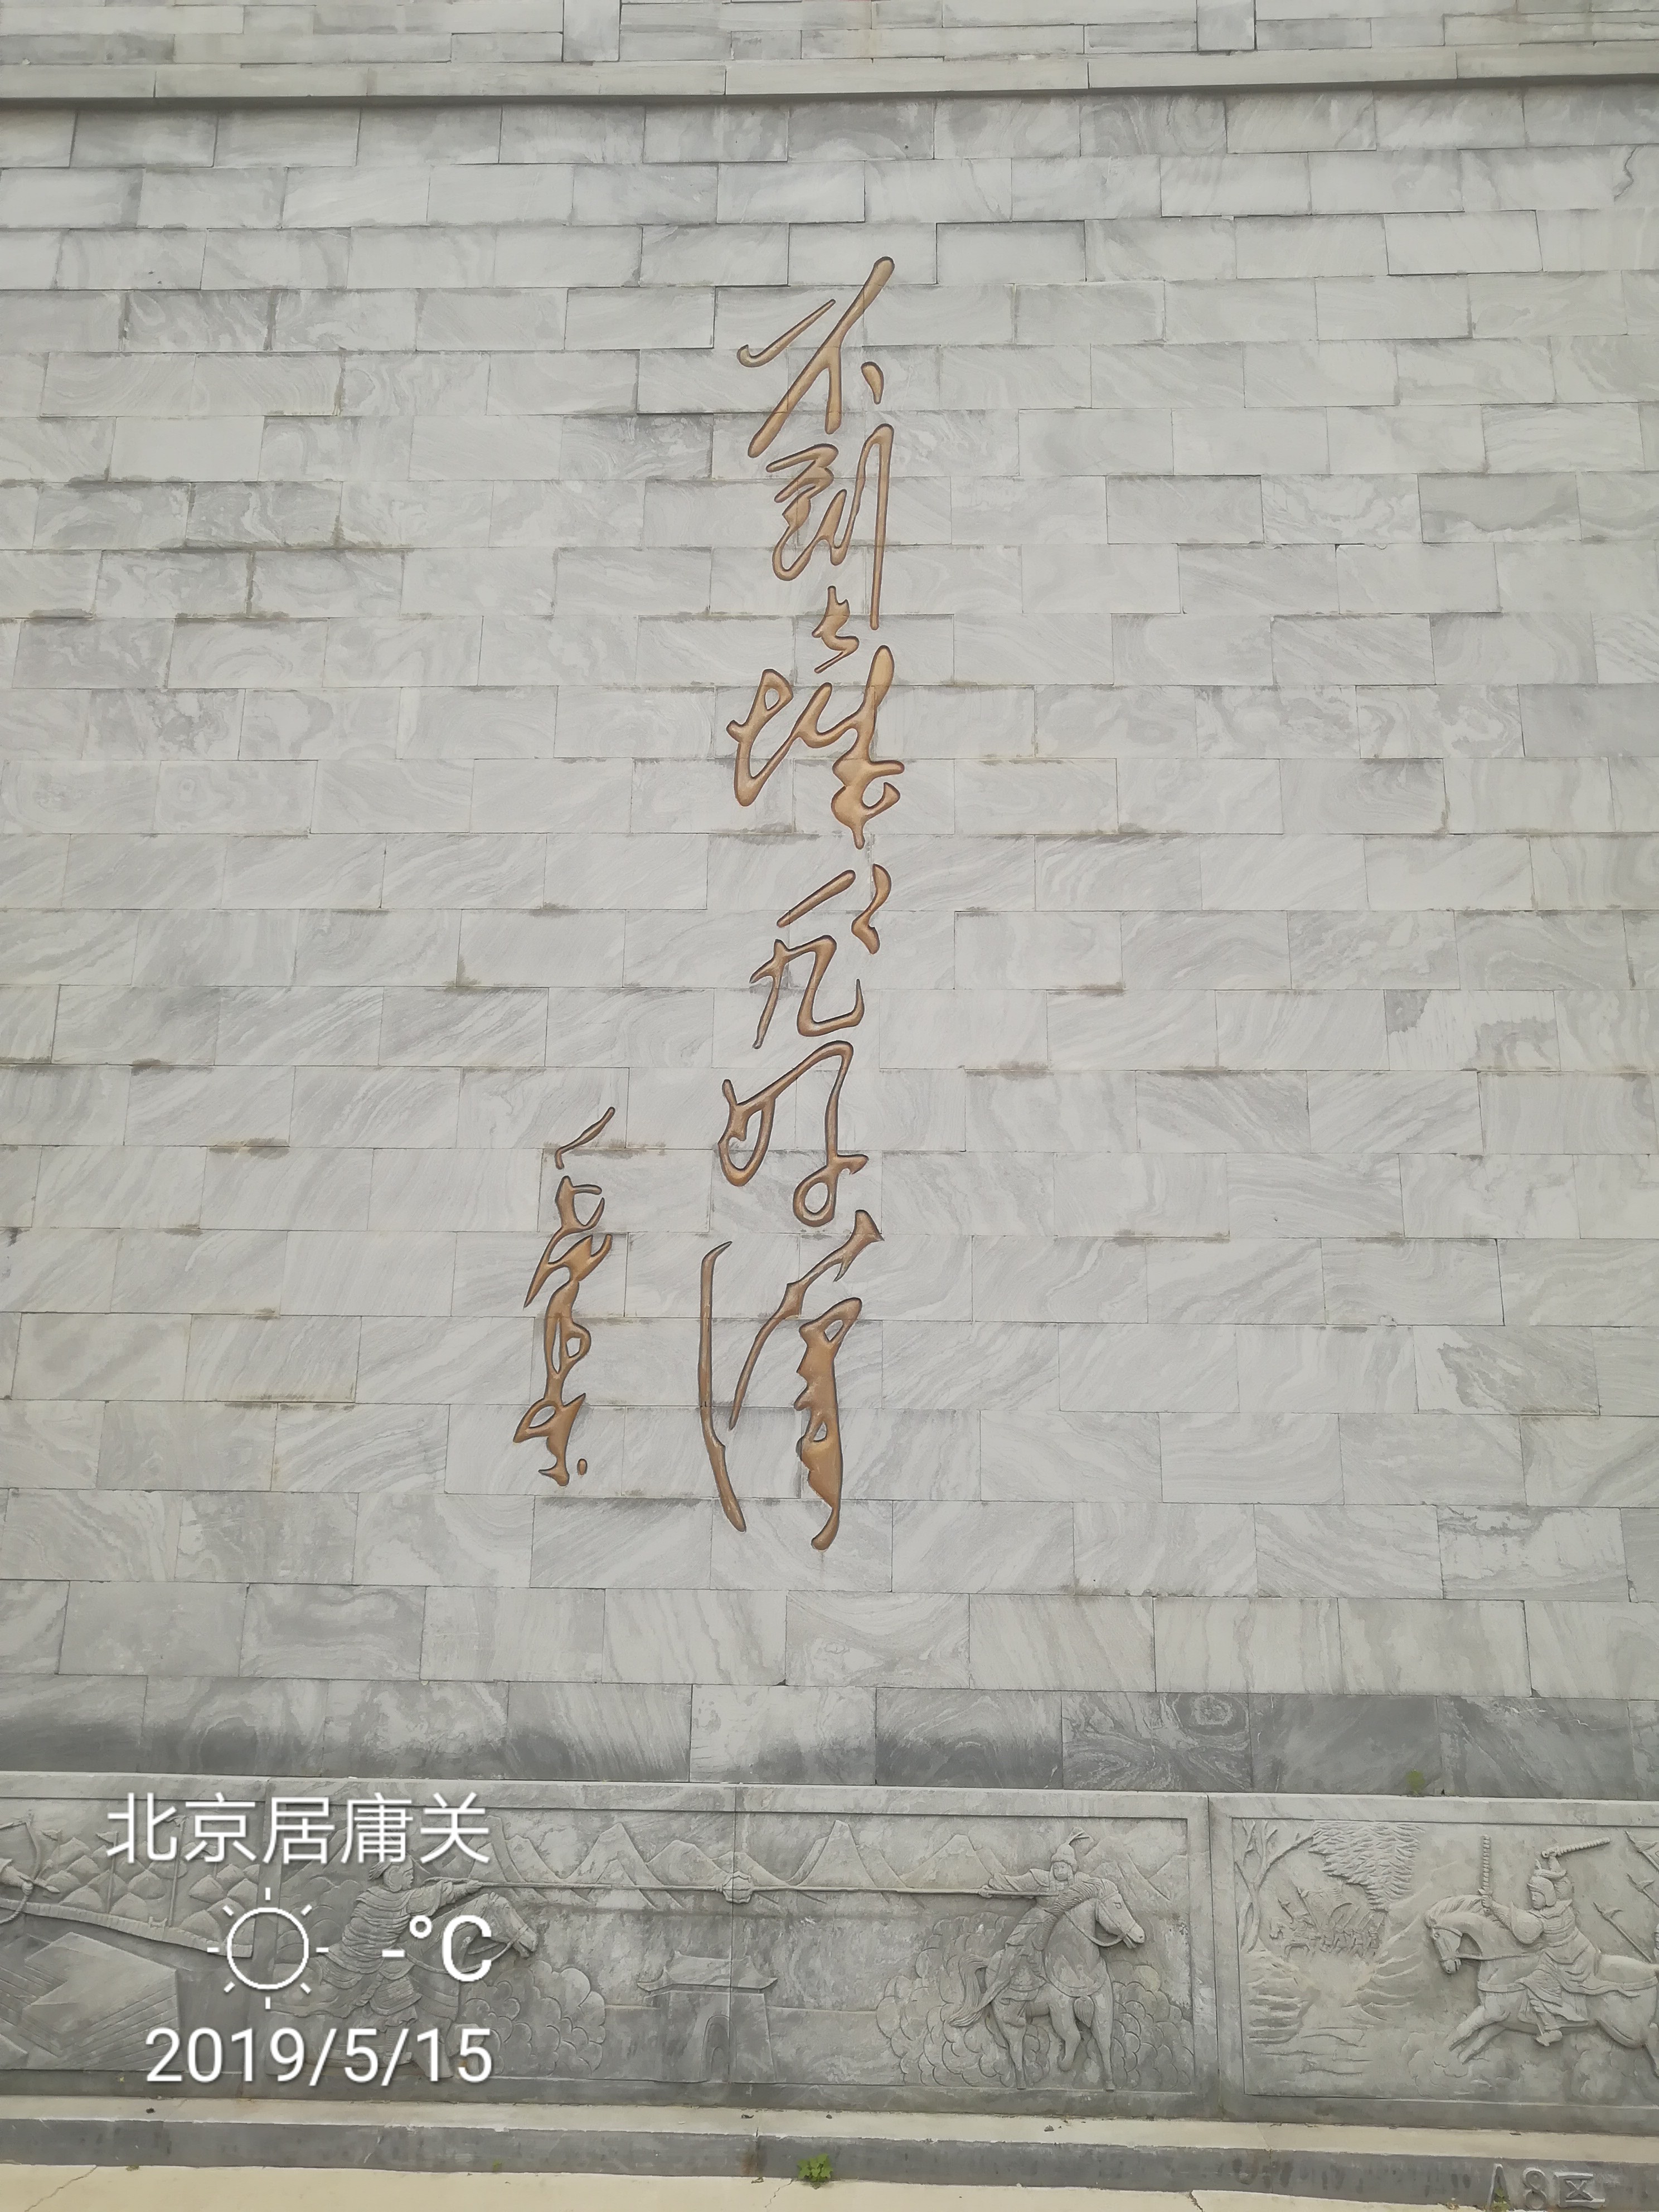 不到长城非好汉
毛泽东
北京居庸关
-°C
2019/5/15
A8区